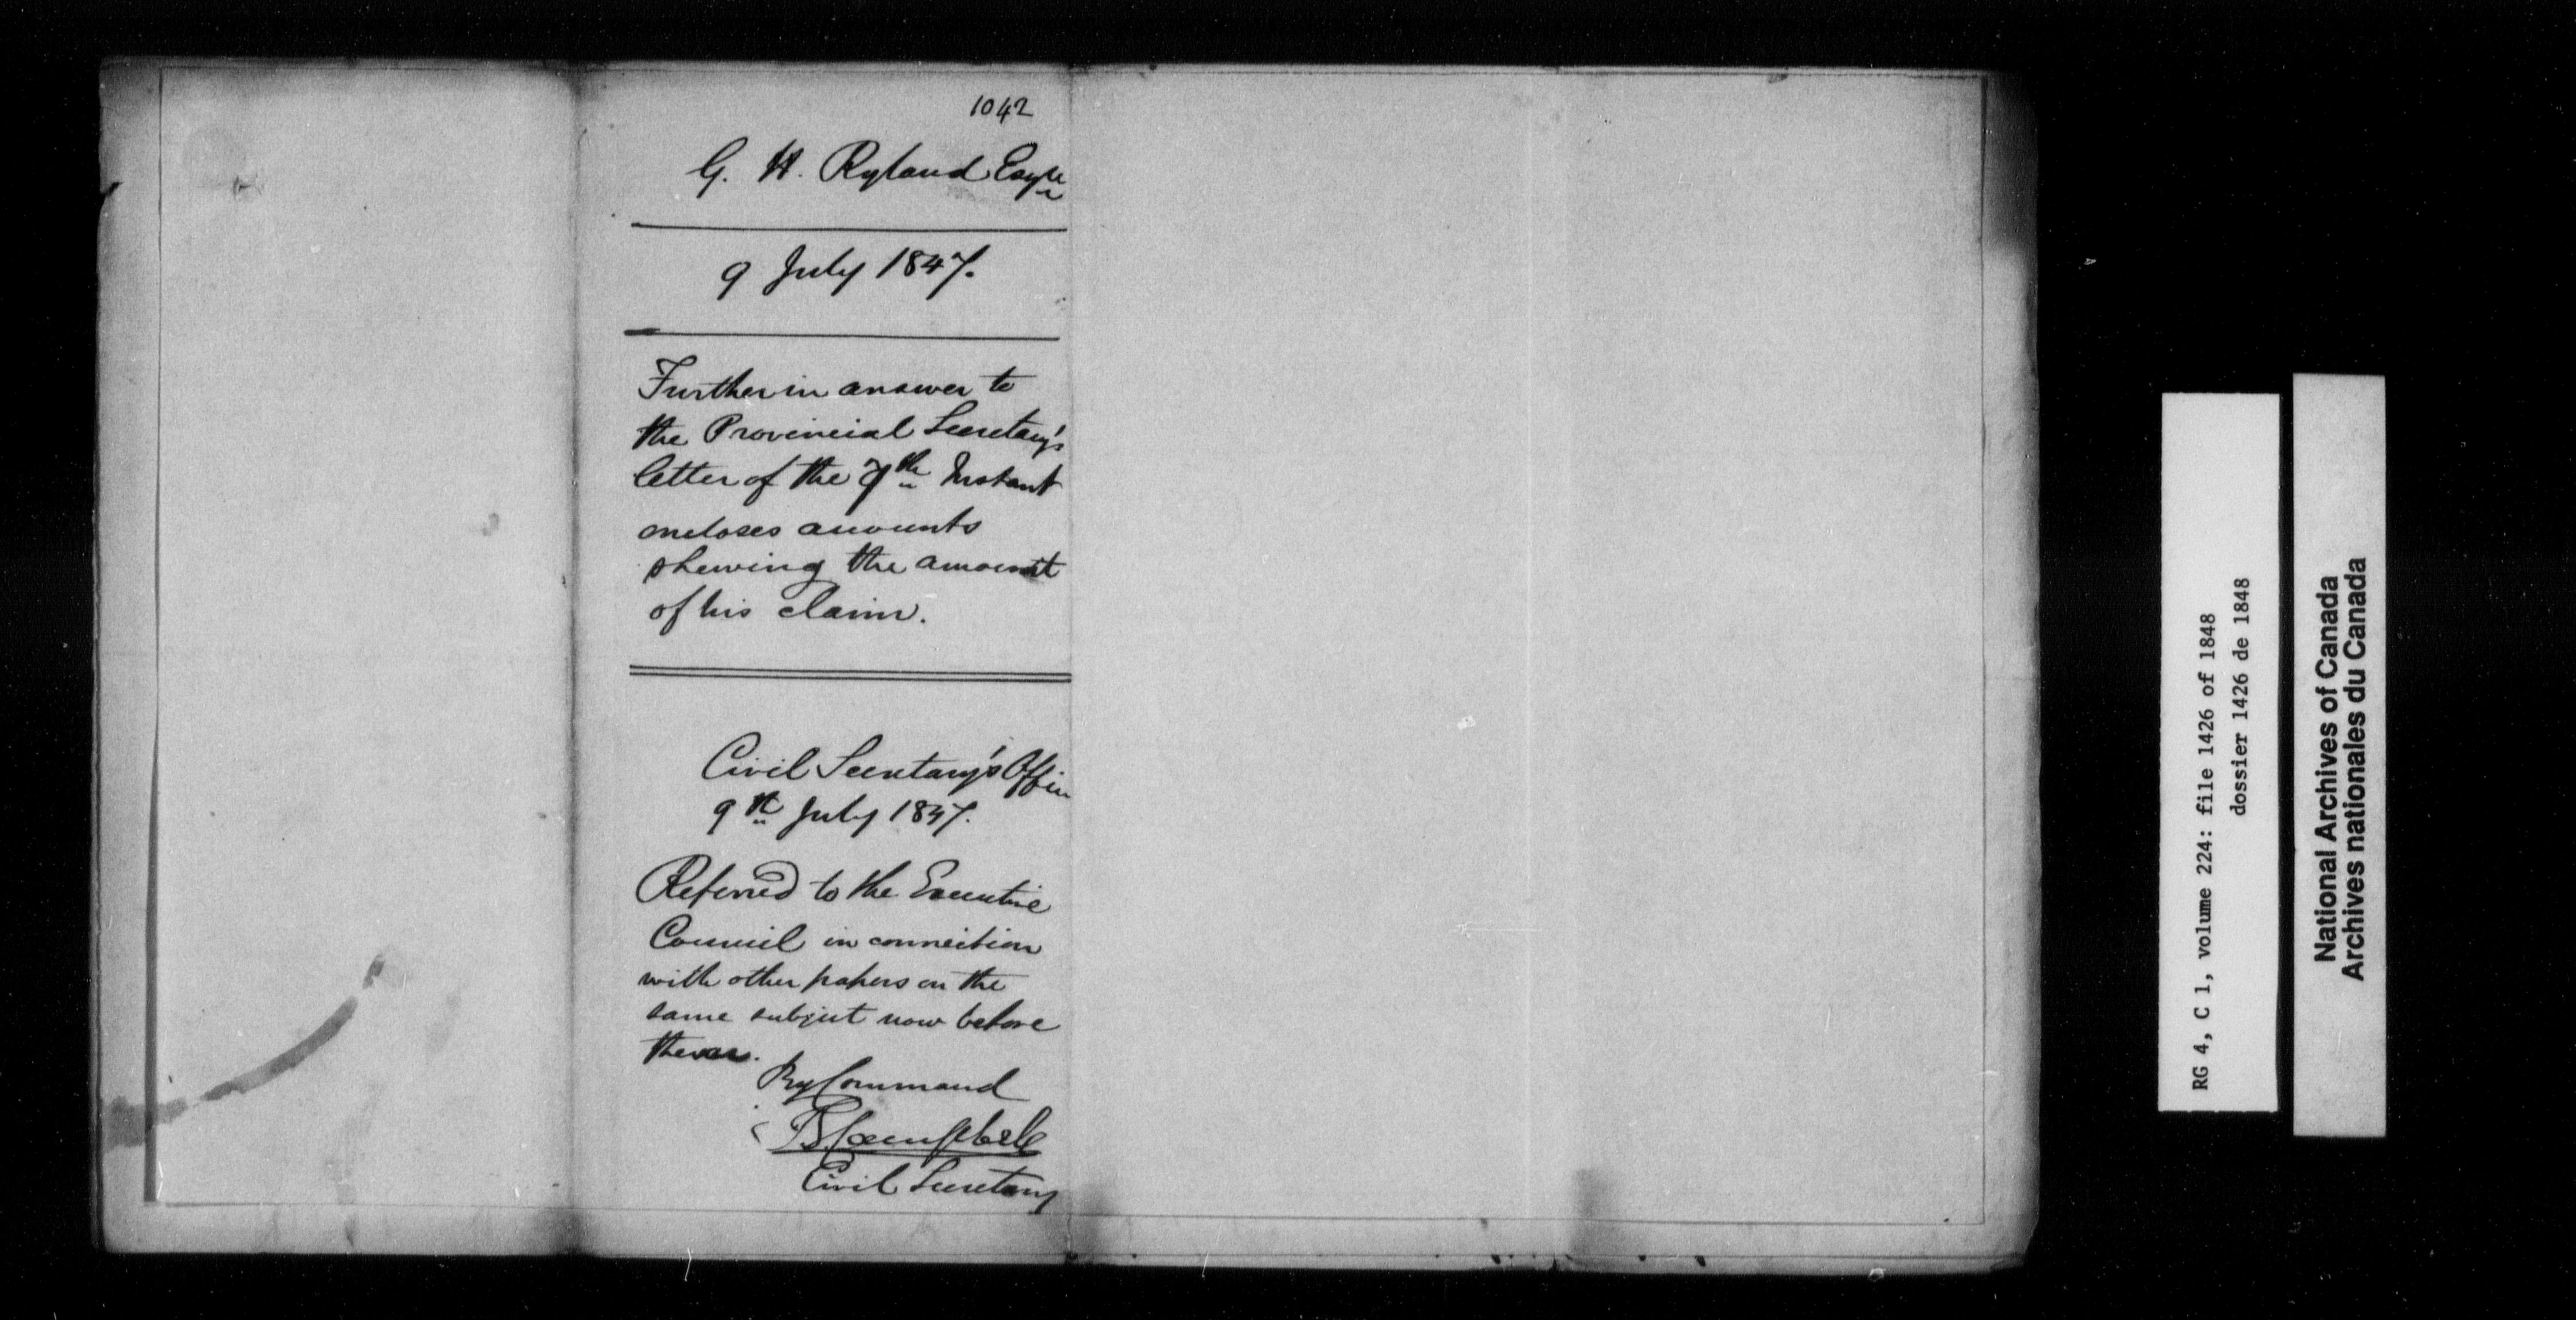 1042
G. H. Ryland Esqre
9 July 1847.
Further in answer to
the Provincial Secretary's
letter of the 7th Instant
encloses accounts
shewing the amount
of his claim.
Civil Secretary's Office
9th July 1847.
Referred to the Executive
Council in connection
with other papers on the
same subject now before
them.
By Command
T E Campbell
Civil Secretary
RG 4, C 1, volume 224: file 1426 of 1848
dossier 1426 de 1848
National Archives of Canada
Archives nationales du Canada